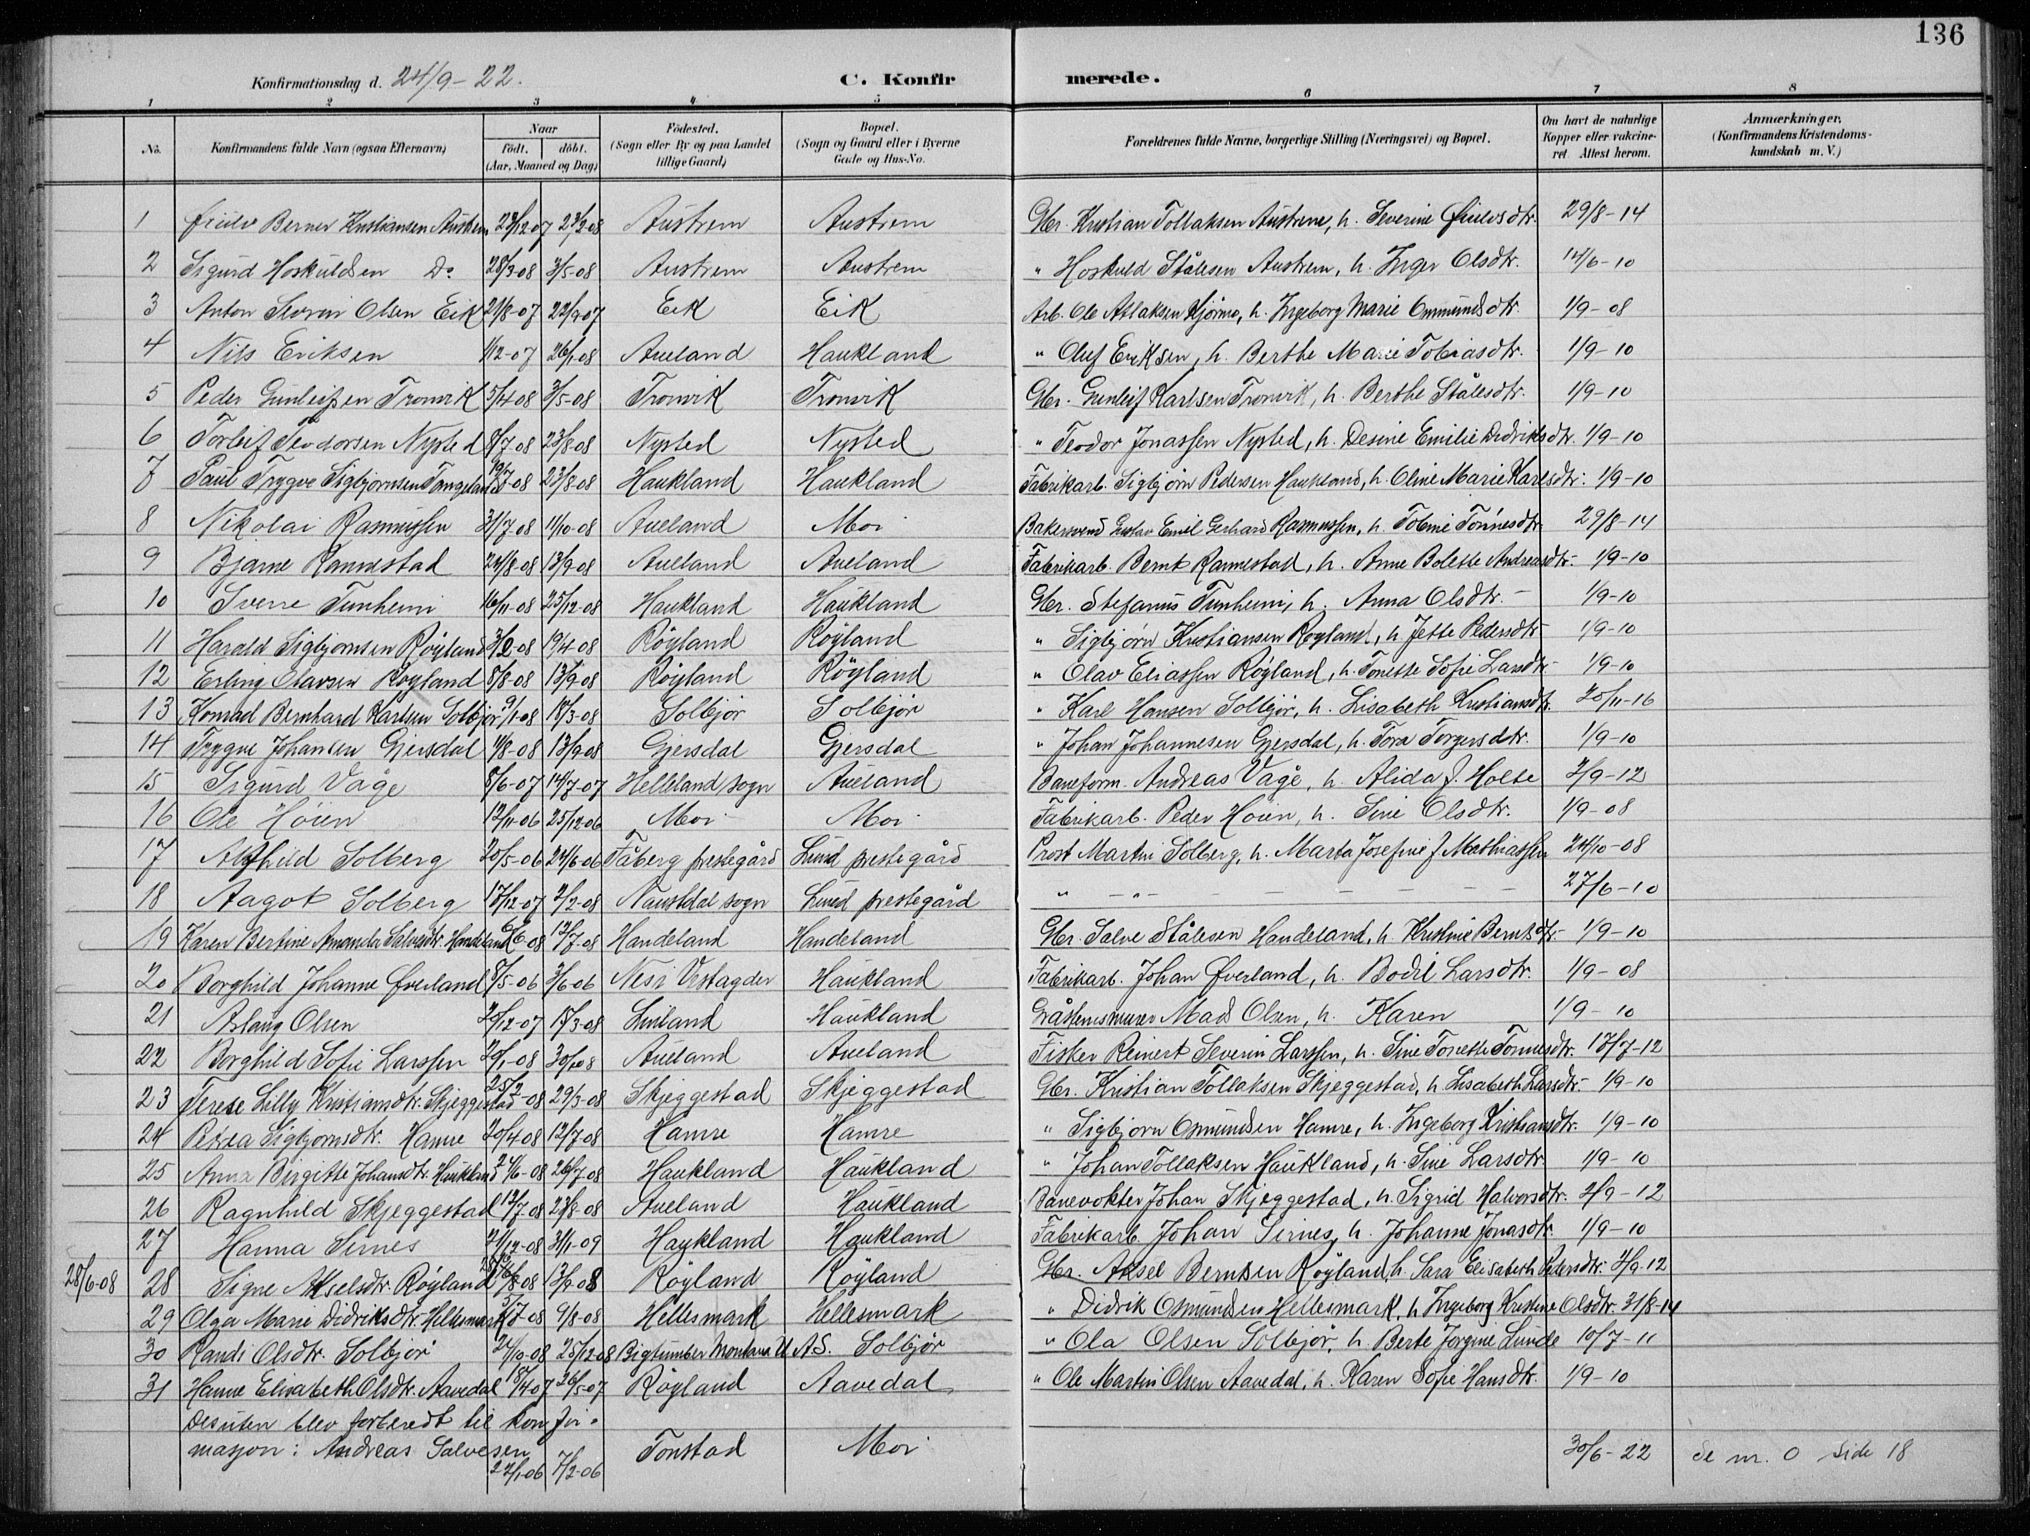 136
Konfirmationsdag d. 24/9-22. C. Konfirmerede.
1 2 3 4 5 6 7 8
No. Konfirmandens fulde Navn (ogsaa Efternavn) Naar født. døbt. (Aar, Maaned og Dag) Fødested. (Sogn eller By og paa Landet tillige Gaard) Bopæl. (Sogn og Gaard eller i Byerne Gade og Hus-No. Forældrenes fulde Navne, borgerlige Stilling (Næringsvei) og Bopæl. Om havt de naturlige Kopper eller vakcineret. Attest herom. Anmærkninger. (Konfirmandens Kristendomskundskab m. V.)
1 Øiulv Berner Kristiansen Austrem 29/12-07 23/2-08 Austrem Austrem Gbr. Kristian Tollaksen Austrem, h. Severine Øiulvsdtr. 29/8-14
2 Sigurd Hoskuldsen Do 28/3-08 3/5-08 Austrem Austrem " Hoskuld Stålesen Austrem, h. Inger Olsdtr. 14/6-10
3 Anton Severin Olsen Eik 21/8-07 22/9-07 Eik Eik Arb. Ole Aslaksen Hjörmo, h. Ingeborg Marie Ommundsdtr. 1/9-08
4 Nils Eriksen 1/12-07 26/1-08 Aueland Haukland " Oluf Eriksen, h. Berthe Marie Tobiasdtr. 1/9-10
5 Peder Gunleifsen Tronvik 5/4-08 3/5-08 Tronvik Tronvik Gbr. Gunleif Karlsen Tronvik, h. Berthe Stålesdtr. 1/9-10
6 Torleif Teodorsen Nysted 8/7-08 23/8-08 Nysted Nysted " Teodor Jonassen Nysted, h. Desine Emilie Didriksdtr. 1/9-10
7 Paul Trygve Sigbjørnsen Tengeland 19/7-08 23/8-08 Haukland Haukland Fabrikarb. Sigbjørn Pedersen Haukland, h. Oline Marie Karlsdtr. 1/9-10
8 Nikolai Rasmussen 31/7-08 11/10-08 Aueland Moi Bakersvend Gustav Emil Gerhard Rasmussen, h. Tobine Tönnesdtr. 29/8-14
9 Bjarne Rannestad 24/8-08 13/9-08 Aueland Aueland Fabrikarb. Bernt Rannestad, h. Anne Bolette Andreasdtr. 1/9-10
10 Sverre Tunheim 16/11-08 25/12-08 Haukland Haukland Gbr. Stefanus Tunheim, h. Anna Olsdtr. 1/9-10
11 Harald Sigbjørnsen Røyland 3/2-08 19/4-08 Røyland Røyland " Sigbjørn Kristiansen Røyland, h. Jette Pedersdtr 1/9-10
12 Erling Olavsen Røyland 8/8-08 13/9-08 Røyland Røyland " Olav Eliassen Røyland, h. Tonette Sofie Larsdtr. 1/9-10
13 Konrad Bernhard Karlsen Solbjør 9/1-08 18/3-08 Solbjør Solbjør " Karl Hansen Solbjør, h. Lisabeth Kristiansdtr. 20/11-16
14 Trygve Johansen Gjersdal 1/8-08 13/9-08 Gjersdal Gjersdal " Johan Johannesen Gjersdal, h. Tora Torgersdtr. 1/9-10
15 Sigurd Våge 8/6-07 14/7-07 Helleland sogn Aueland Baneform. Andreas Våge, h. Alida f. Holte 2/9-12
16 Ole Höien 12/11-06 25/12-06 Moi Moi Fabrikarb. Peder Höien, h. Sine Olsdtr. 1/9-08
17 Alfhild Solberg 20/5-06 24/6-06 Fåberg prestegård Lund prestegård Prost Martin Solberg, h. Marta Josefine f. Mathiassen 24/10-08
18 Aagot Solberg 17/12-07 2/2-08 Naustdal sogn Lund prestegård " - " - - - - - 27/6-10
19 Karen Bertine Amanda Salvesdtr. Handeland 6/6-08 12/7-08 Handeland Handeland Gbr. Salve Stålesen Handeland, h. Kristine Berntsdtr. 1/9-10
20 Borghild Johanne Øverland 8/5-06 3/6-06 Nesi Vestagder Haukland Fabrikarb. Johan Øverland, h. Bodil Larsdtr. 1/9-08
21 Aslaug Olsen 20/12-07 15/3-08 Linland Haukland Gråstensmurer Mads Olsen, h. Karen 1/9-10
22 Borghild Sofie Larssen 20/1-08 30/1-08 Aueland Aueland Fisker Reinert Severin Larssen, h. Sine Tonette Tonnesdtr. 17/7-12
23 Terese Lilly Kristiansdtr. Skjeggestad 25/2-08 29/3-08 Skjeggestad Skjeggestad Gbr. Kristian Tollaksen Skjeggestad, h. Lisabeth Larsdtr. 1/9-10
24 Petrea Sigbjørnsdtr. Hamre 20/4-08 12/7-08 Hamre Hamre " Sigbjørn Osmundsen Hamre, h. Ingeborg Kristiansdtr. 1/9-10
25 Anna Birgitte Johansdtr. Haukland 24/6-08 26/7-08 Haukland Haukland " Johan Tollaksen Haukland, h. Sine Larsdtr. 1/9-10
26 Ragnhild Skjeggestad 12/7-08 23/8-08 Aueland Haukland Banevokter Johan Skjeggestad, h. Sigrid Halvorsdtr. 2/9-12
27 Hanna Sirnes 21/12-08 31/1-09 Haukland Haukland Fabrikarb. Johan Sirnes, h. Johanne Jonasdtr. 1/9-10
28/6-08 28 Signe Akselsdtr. Røyland 13/9-08 Røyland Røyland Gbr. Aksel Berntsen Røyland, h. Sara Elisabeth Petersdtr. 2/9-12
29 Olga Marie Didriksdtr. Hellesmark 5/7-08 9/8-08 Hellesmark Hellesmark " Didrik Osmundsen Hellesmark, h. Ingeborg Kristine Olsdtr. 31/8-14
30 Randi Olsdtr. Solbjör 24/10-08 25/12-08 Bigtimber Montana U.A.S. Solbjör " Ola Olsen Solbjør, h. Berte Jorgine Lunde 10/7-11
31 Hanne Elisabeth Olsdtr. Aavedal 18/4-07 26/5-07 Røyland Aavedal " Ole Martin Olsen Aavedal, h. Karen Sofie Hansdtr. 1/9-10
Desuten blev forberedt til konfir-
masjon: Andreas Salvesen 22/1-06 7/2-06 Tonstad Moi 30/6-22 se nr. 0 side 18